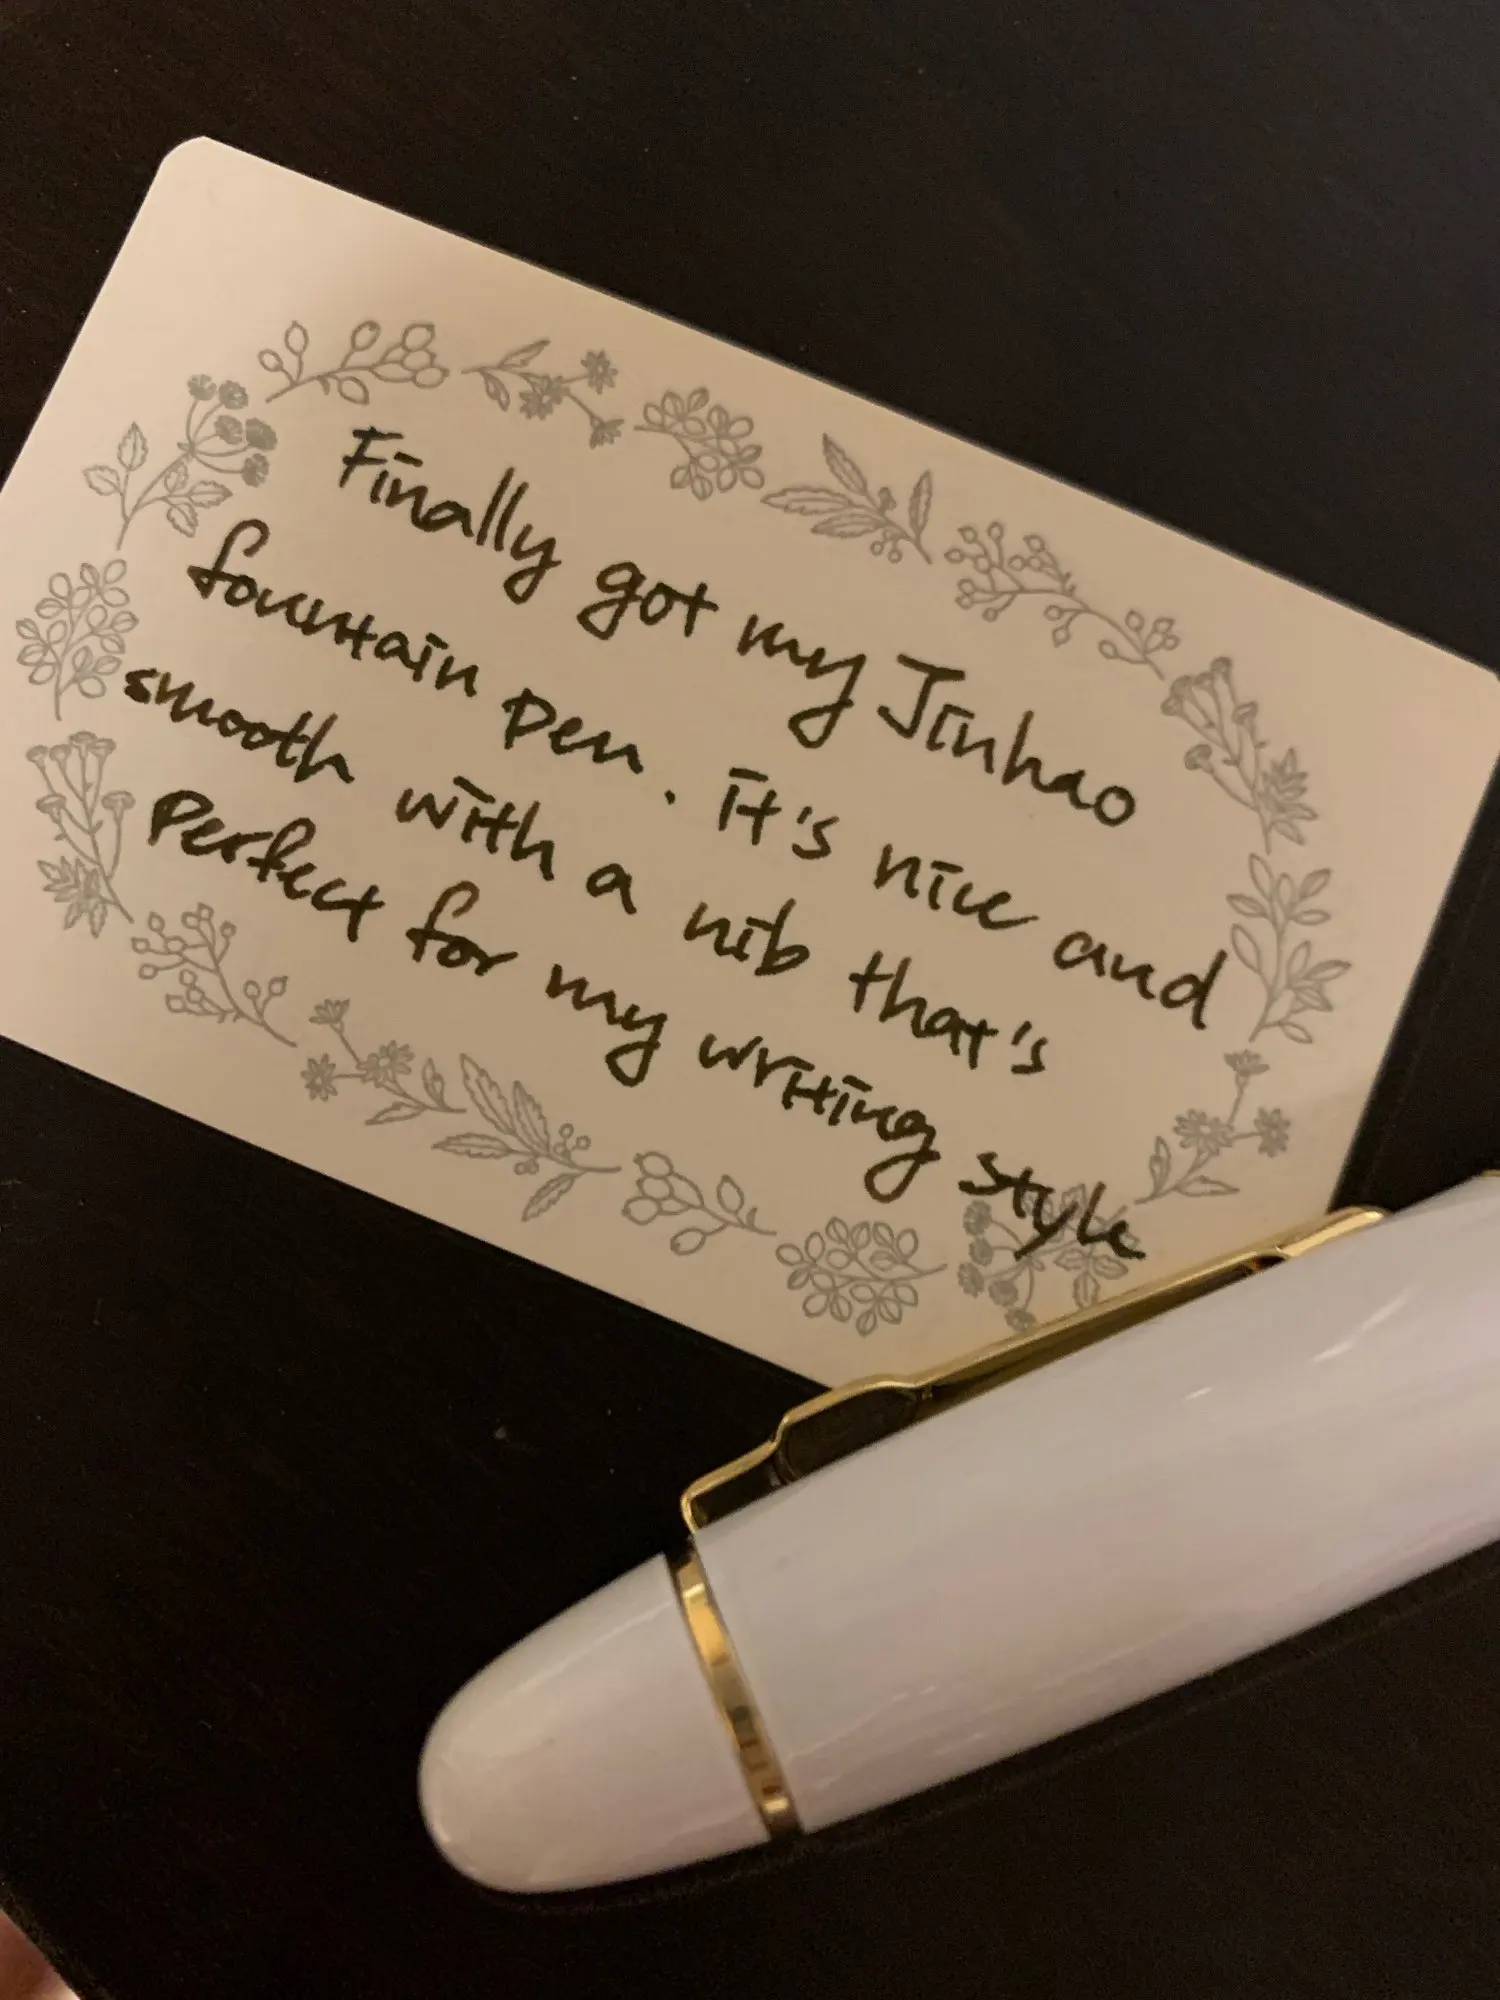 Finally got my Jinhao
fountain pen. it's nice and
smooth with a nib that's
Perfect for my writing style